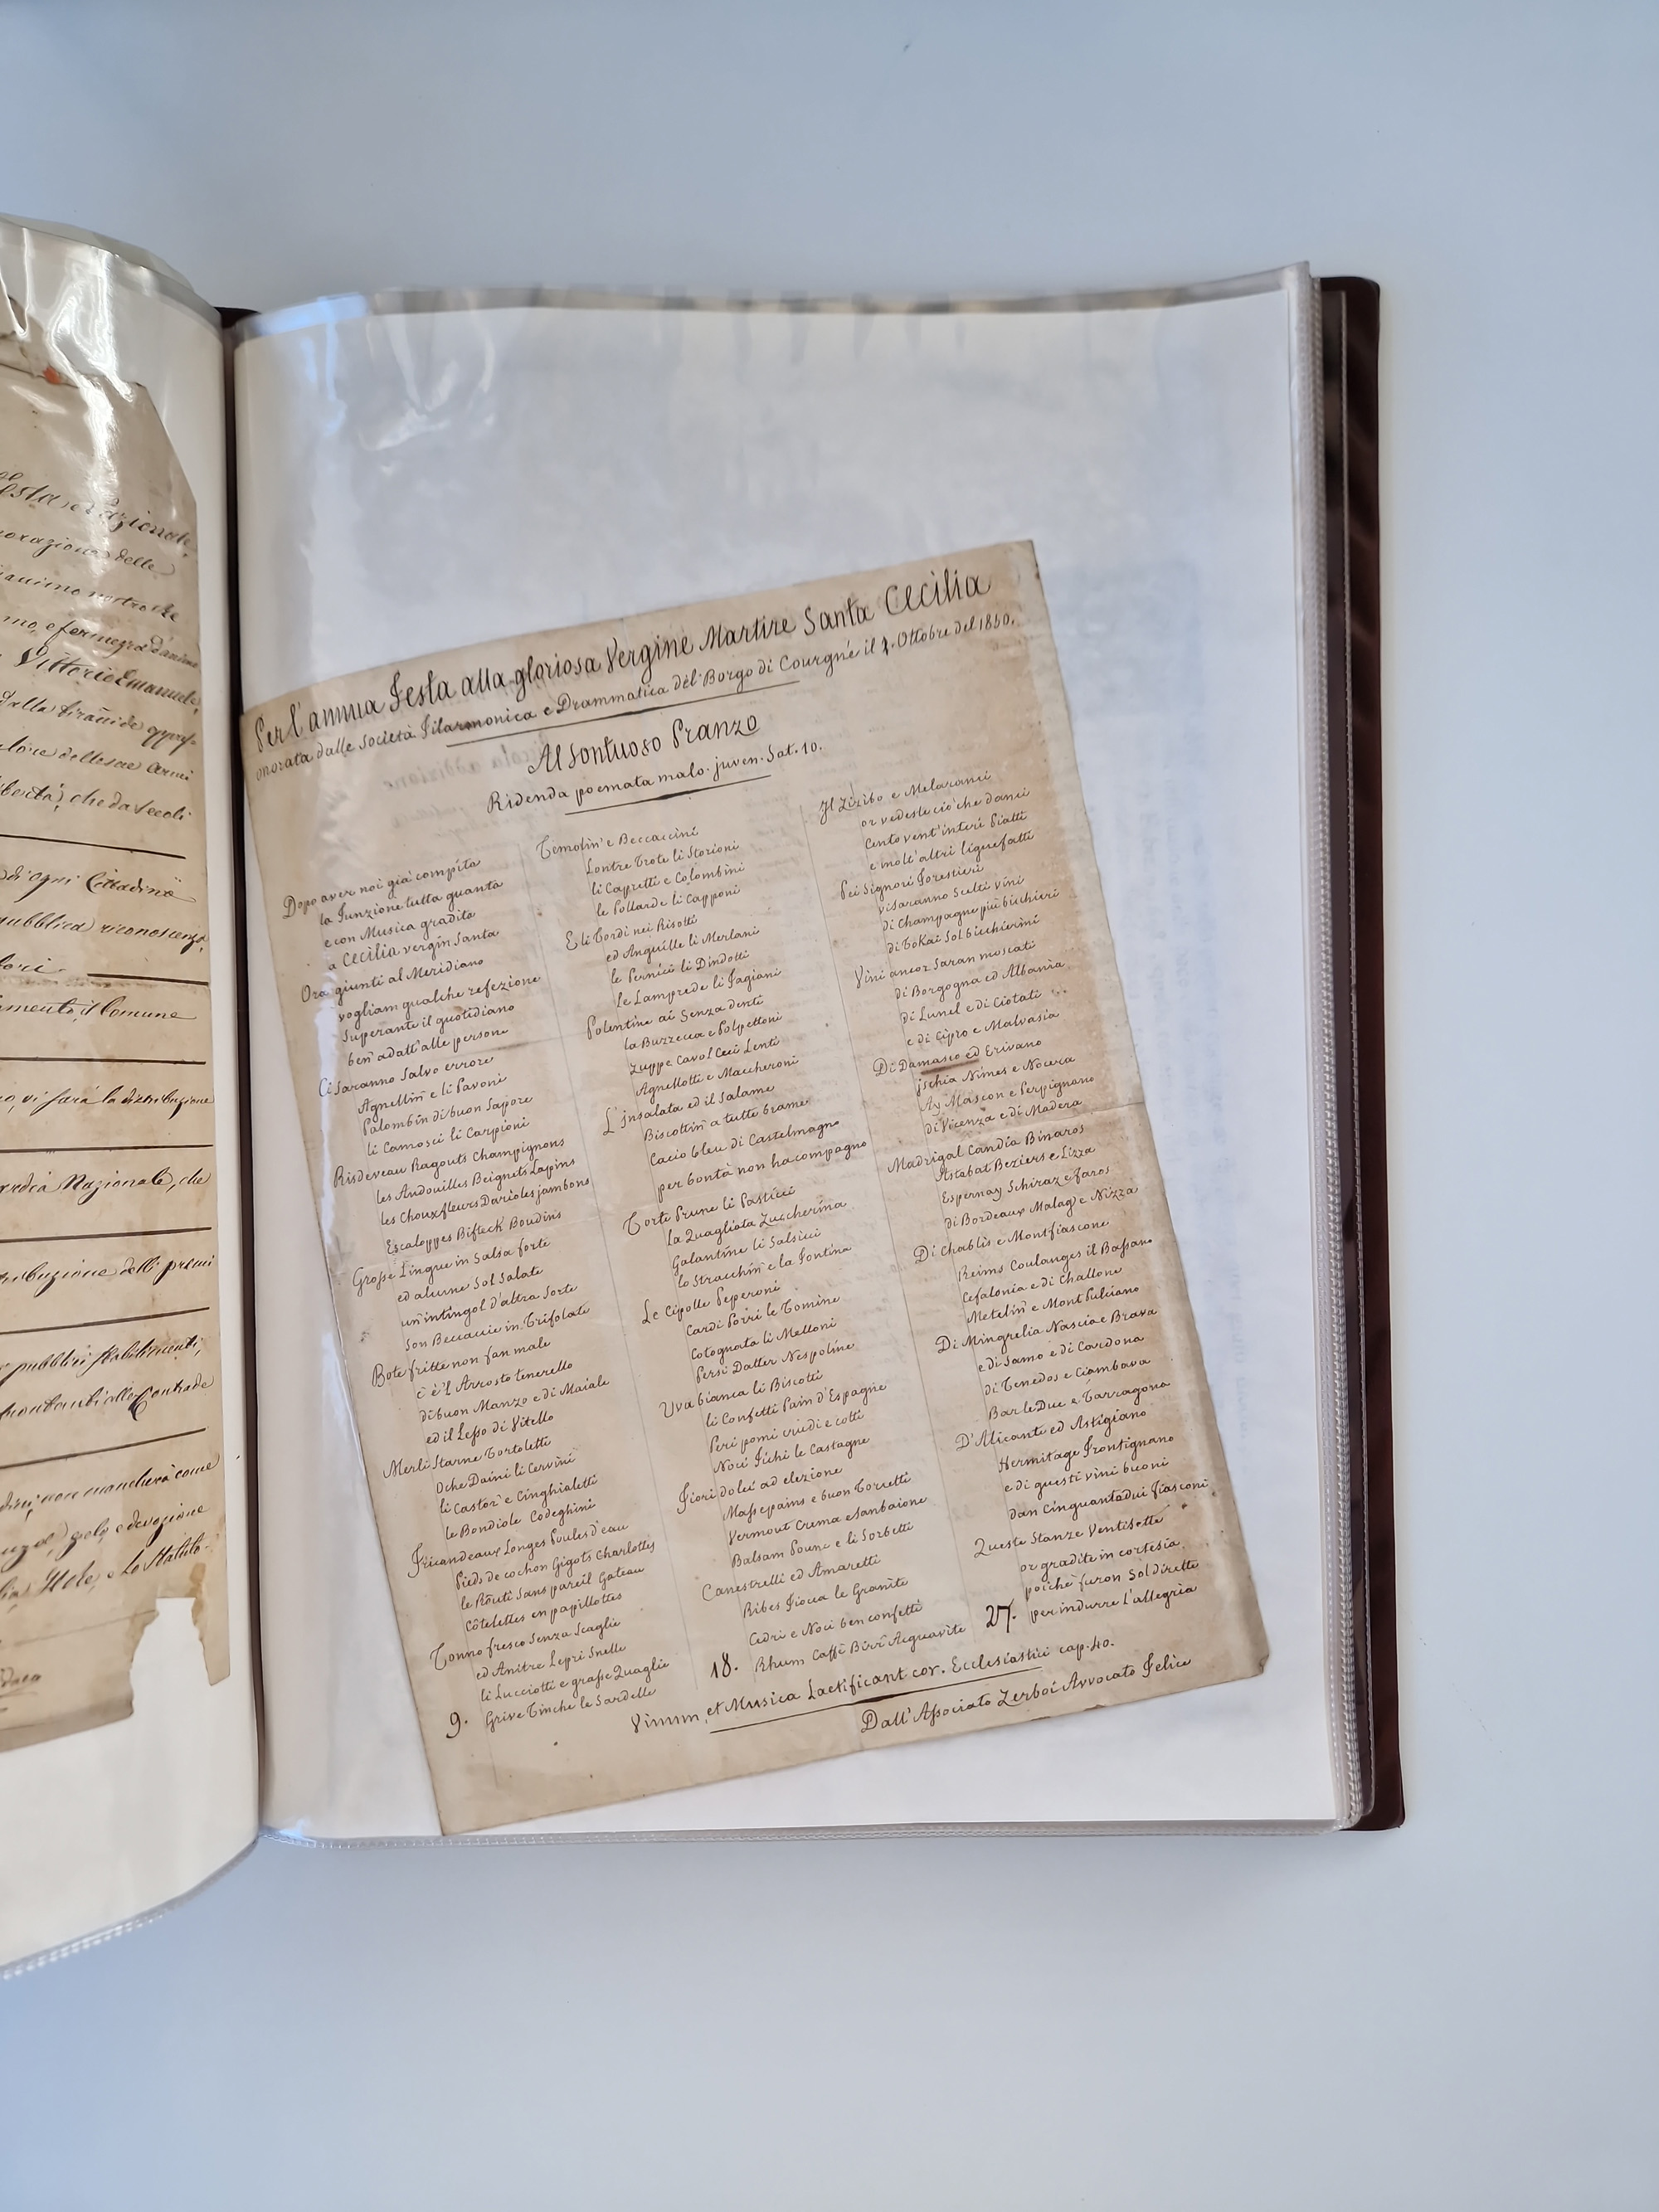 esta Nazionale,
orazione delle
mo, e fermezza d'animo
Vittorio Emanuele,
dalla tirannide oppres-
tore delle sue armi
libertà, che da secoli
di ogni Cittadino
pubblica riconoscenza
tori.
il Comune
vi sarà la distribuzione
Nazionale, che
tribuzione delli premi
pubblici stabilimenti,
alle Contrade
non mancherà come
zelo, e devozione
lo Stabilo-
Per l'annua Festa alla gloriosa Vergine Martire Santa Cecilia
onorata dalle Società Filarmonica e Drammatica del Borgo di Courgnè il Ottobre del 1850.
Al Sontuoso Pranzo
Ridenda poemata malo. juven. Sat. 10.
Dopo aver noi già compita
la Funzione tutta quanta
e con Musica gradita
a Cecilia vergin Santa
Ora giunti al Meridiano
vogliam qualche refezione
superante il quotidiano
ben adatt'alle persone
Ci saranno Salvo errore
Agnellin e li Pavoni
Palombin di buon Sapore
li Camosci li Carpioni
Risdeveau Ragouts Champignons
les Andouilles Beignets Lapins
les Chouxfleurs Darioles jambons
Escaloppes Bifteck Boudins
Grosse Lingue in Salsa forte
ed alcune Sol Salate
un'intingol d'altra Sorte
Son Beccacie in Trifolate
Bote fritte non fan male
c'è'l Arrosto tenerello
di buon Manzo e di Maiale
ed il Lesso di Vitello
Merli Starne Tortoletti
Oche Daini li Cervini
li Castor' e Cinghialetti
le Bondiole Codeghini
Fricandeaux Longes Poules d'eau
Pieds de cochon Gigots Charlottes
le Rôuti Sans pareil Gateau
Côtelettes en papillottes
Tonno fresco Senza Scaglie
ed Anitre Lepri Snelle
li Lucciotti e grasse Quaglie
9. Grive Tinche le Sardelle
Temolin' e Beccaccini
Lontre Trote li Storioni
li Capretti e Colombini
le Pollarde li Capponi
E li Tordi nei Risotti
ed Anguille li Merlani
le Pernici li Dindotti
Le Lamprede li Fagiani
Polentine ai Senza denti
la Buzzecca e Polpettoni
Zuppe Cavol Ceci Lenti
Agnellotti e Maccheroni
L'insalata ed il Salame
Biscottin a tutte brame
Cacio bleu di Castelmagno
per bontà non ha compagno
Torte Prune li Pasticci
la Quagliata Zuccherina
Galantine li Salsicci
lo Stracchin e la Fontina
Le Cipolle Peperoni
Cardi Porri le Tomine
Cotognata li Melloni
Persi Datter Nespoline
Uva bianca li Biscotti
li Confetti Pain d'Espagne
Peri pomi crudi e cotti
Noci Fichi le Castagne
Fiori dolci ad elezione
Massepains e buon Torretti
Vermout Crema e Sanbaione
Balsam Pounc e li Sorbetti
Canestrelli ed Amaretti
Ribes Fiocca le Granite
Cedri e Noci ben confetti
18. Rhum Caffè Birr' Acquavite
Il Zizibo e Melaranci
or vedeste ciò che danci
Cento vent'interi Piatti
e molt'altri liquefatti
Pei Signori Forestieri
vi saranno Scelti vini
di Champagne più bicchieri
di Tokai Sol bicchierini
Vini ancor Saran moscati
di Borgogna ed Albania
di Lunel e di Ciotati
e di Cipro e Malvasia
Di Damasco ed Erivano
jschia Nimes e Nocera
Ay Mascon e Perpignano
di Vicenza e di Madera
Madrigal Candia Binaros
Astabat Beziers e Lizza
Espernay Schiraz e Faros
di Bordeaux Malag' e Nizza
Di Chablis e Montfiascone
Reims Coulanges il Bassano
Cefalonia e di Challone
Metelin e Mont Pulciano
Di Mingrelia Nascia e Brava
e di Samo e di Cardona
di Tenedos e Ciambava
Bar le Duc e Tarragona
D'Alicante ed Astigiano
Hermitage Frontignano
e di questi vini buoni
dan Cinquantadui fiasconi
Queste Stanze Ventisette
or gradite in cortesia
poichè furon Sol dirette
27. per indurre l'allegria
Vinum, et Musica Laetificant cor. Ecclesiastici cap. 40.
Dall'Associato Zerboi Avvocato Felice